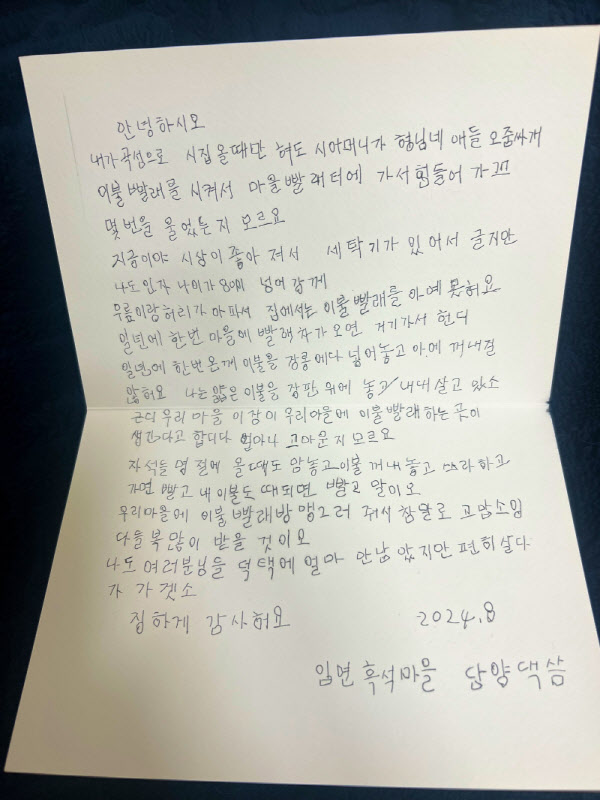 안녕하시오
내가 곡성으로 시집 올때만 혀도 시어머니가 형님네 애들 오줌싸개
이불 빨래를 시켜서 마을 빨래터에 가서 힘들어 가꼬
몇번을 울었는지 모르요
지금이야 시상이 좋아져서 세탁기가 있어서 글지만
나도 인자 나이가 80이 넘어강께
무릎이랑 허리가 아파서 집에서는 이불빨래를 아예 못혀요
일년에 한번 마을에 빨래차가 오면 거기가서 헌디
일년에 한번온께 이불을 장롱에다 넣어놓고 아예 꺼내질
않혀요 나는 얇은 이불을 장판 위에 놓고 내내 살고 있소
근디 우리 마을 이장이 우리마을에 이불빨래하는 곳이
생긴다고 합디다 얼마나 고마운지 모르요
자석들 명절에 올때도 맘놓고 이불 꺼내놓고 쓰라하고
가면 빨고 내이불도 때되면 빨고 말이오
우리마을에 이불 빨래방 맹그러 줘서 참말로 고맙소잉
다들 복많이 받을 것이오
나도 여러분님들 덕택에 얼마 안남았지만 편히살다
가 가겟소
집하게 감사혀요 2024.8
입면 흑석마을 담양댁 씀